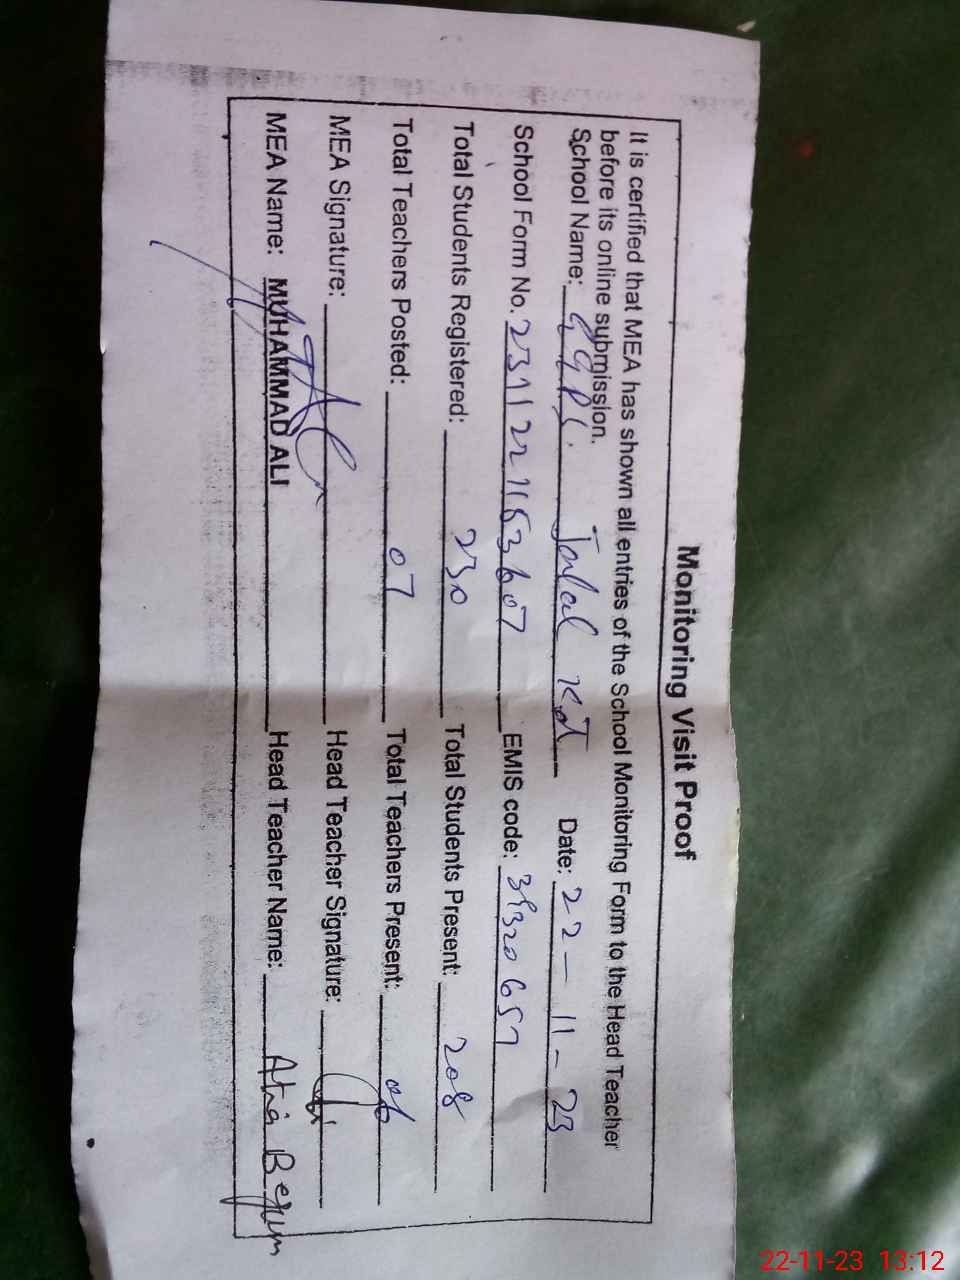 Monitoring Visit Proof
It is certified that MEA has shown all entries of the School Monitoring Form to the Head Teacher
before its online submission.
School Name: GGPS. Jalal Kot Date: 22-11-23
School Form No. 231122 EMIS code: 39320657
Total Students Registered: 230 Total Students Present: 208
Total Teachers Posted: 07 Total Teachers Present: 06
MEA Signature: Head Teacher Signature:
MEA Name: MUHAMMAD ALI Head Teacher Name: Atia Begum
22-11-23 13:12